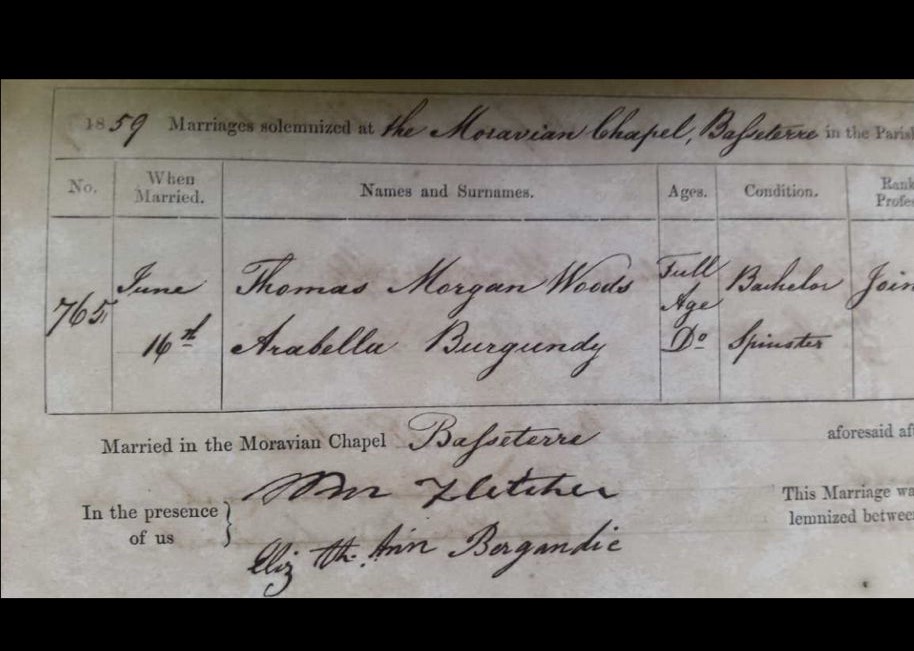 1859 Marriages solemnized at the Moravian Chapel, Basseterre in the Paris
No. When Married. Names and Surnames. Ages. Condition. Rank Profes
765 June 16th Thomas Morgan Woods Full Age Bachelor Join
Arabella Burgundy Do Spinster
Married in the Moravian Chapel Basseterre aforesaid aft
In the presence of us Wm Fletcher This Marriage wa
lemnized between
Eliz th. Ann Bergandie